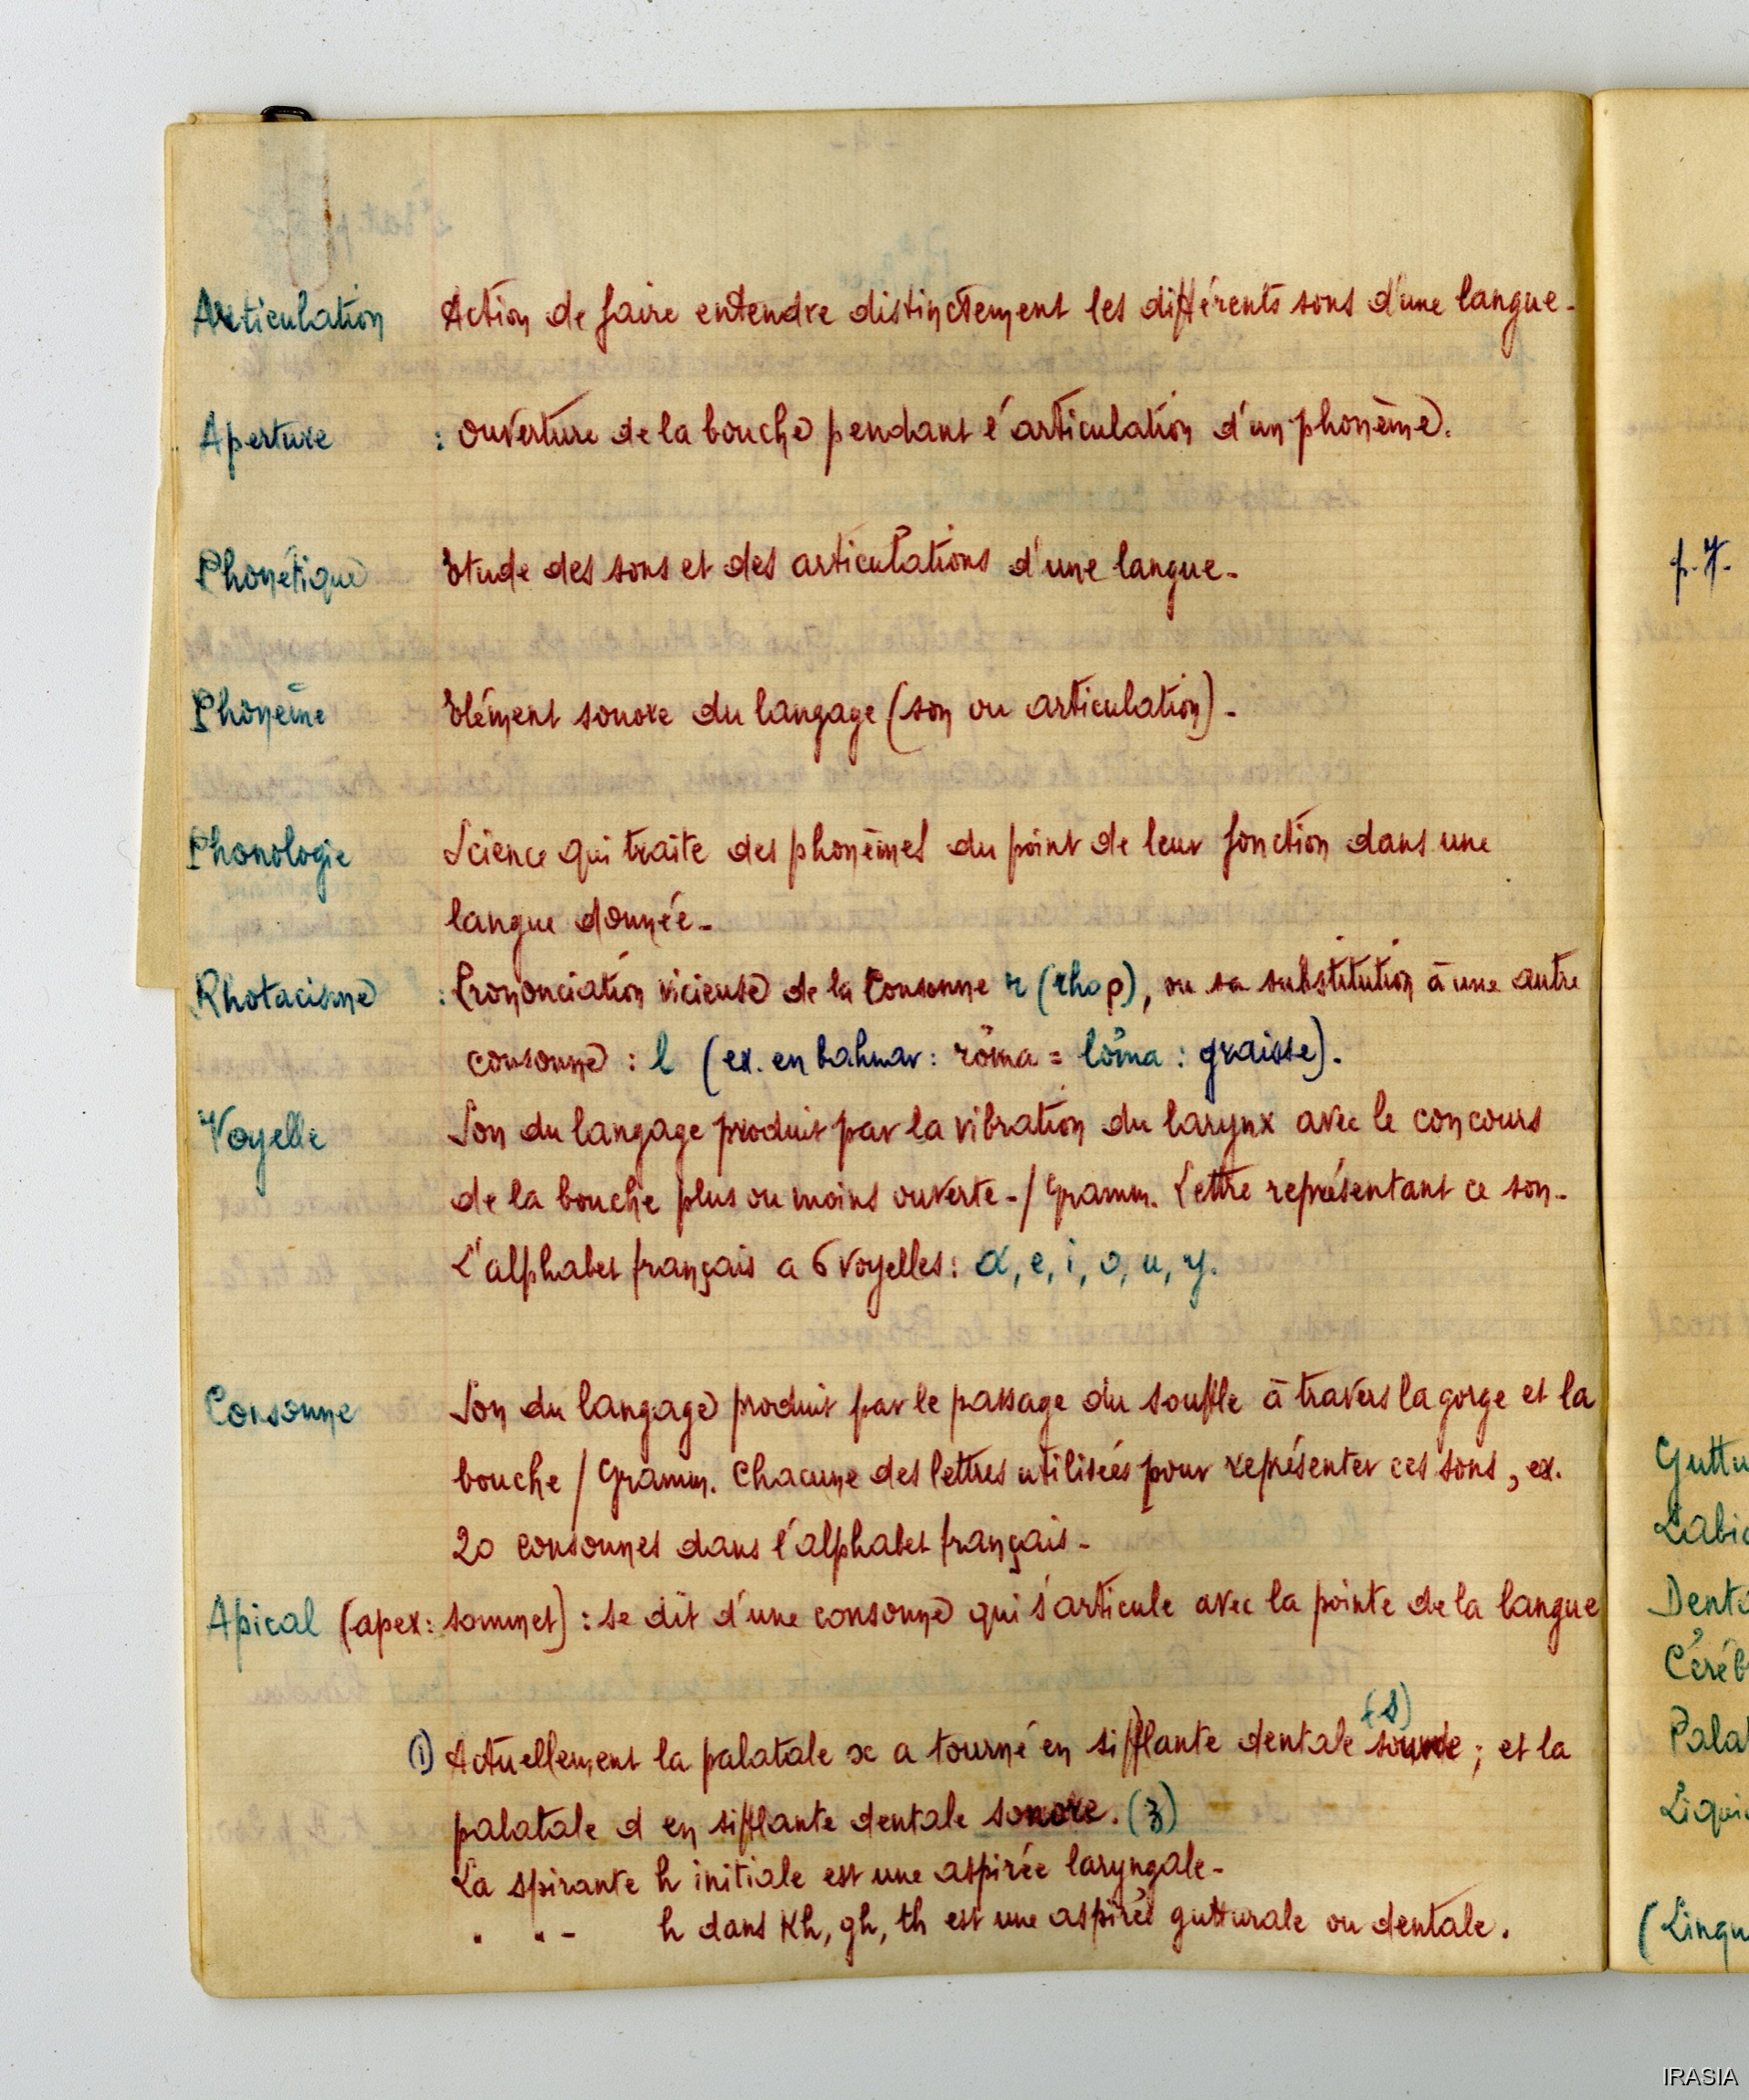 Articulation Action de faire entendre distinctement les différents sons d'une langue.
Aperture : ouverture de la bouche pendant l'articulation d'un phonème.
Phonétique Etude des sons et des articulations d'une langue.
Phonème Elément sonore du langage (son ou articulation).
Phonologie Science qui traite des phonèmes du point de leur fonction dans une
langue donnée.
Rhotacisme : Prononciation vicieuse de la Consonne r (rho ρ), ou sa substitution à une autre
consonne : l (ex. en bahnar : rŏma = lŏma : graisse).
Voyelle Son du langage produit par la vibration du larynx avec le concours
de la bouche plus ou moins ouverte. / Gramm. Lettre représentant ce son.
L'alphabet français a 6 voyelles : a, e, i, o, u, y.
Consonne Son du langage produit par le passage du souffle à travers la gorge et la
bouche / Gramm. Chacune des lettres utilisées pour représenter ces sons, ex.
20 consonnes dans l'alphabet français.
Apical (apex : sommet) : se dit d'une consonne qui s'articule avec la pointe de la langue
(s)
(1) Actuellement la palatale x a tourné en sifflante dentale sourde ; et la
palatale d en sifflante dentale sonore. (z)
La spirante h initiale est une aspirée laryngale.
" " - h dans Kh, gh, th est une aspirée gutturale ou dentale.
p. 7.
Guttu
Labia
Denta
Céréb
Palat
Liqui
(Lingu
IRASIA